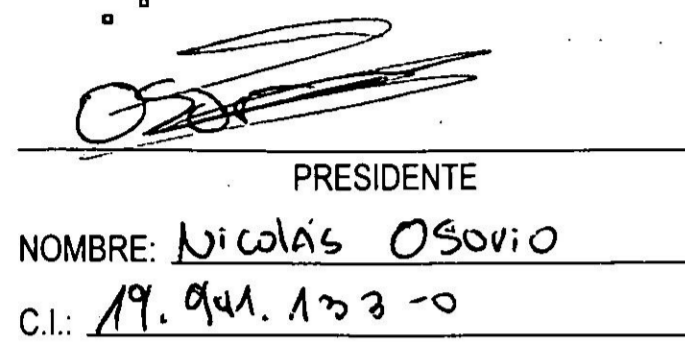 PRESIDENTE
NOMBRE: Nicolás Osorio
C.I.: 19.941.133-0